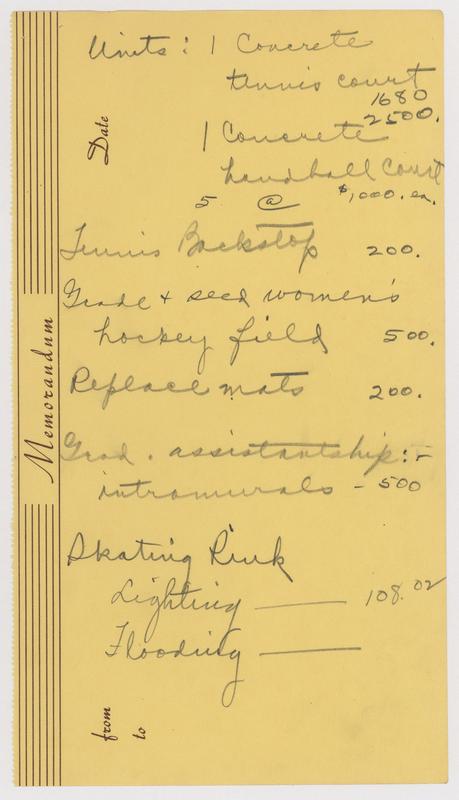 Memorandum
Date
from
to
Units : 1 Concrete
tennis court
1680
2500.
1 Concrete
handball court
5 @ $1,000. ea.
Tennis Backstop 200.
Grade & seed women's
hockey field 500.
Replace mats 200.
Grad. assistantship :-
intramurals - 500
Skating Rink
Lighting — 108.02
Flooding —